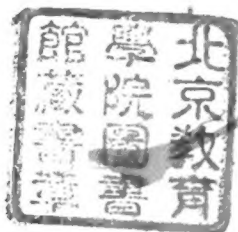 北京教育
學院圖書
館藏書章